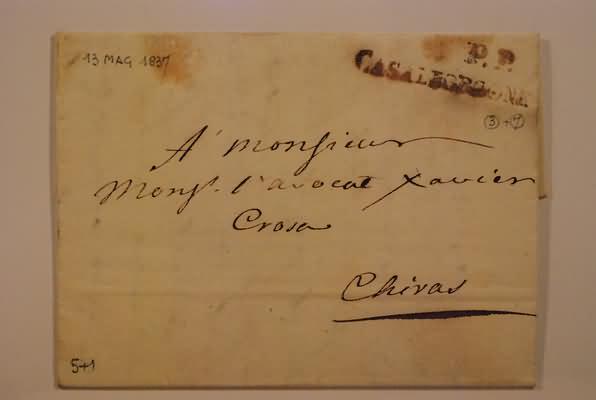 13 MAG 1837
P.P.
CASALBORGONE
3 + 7
A' Monsieur
Mons.r l'avocat Xavier
Crosa
Chivas
5+1